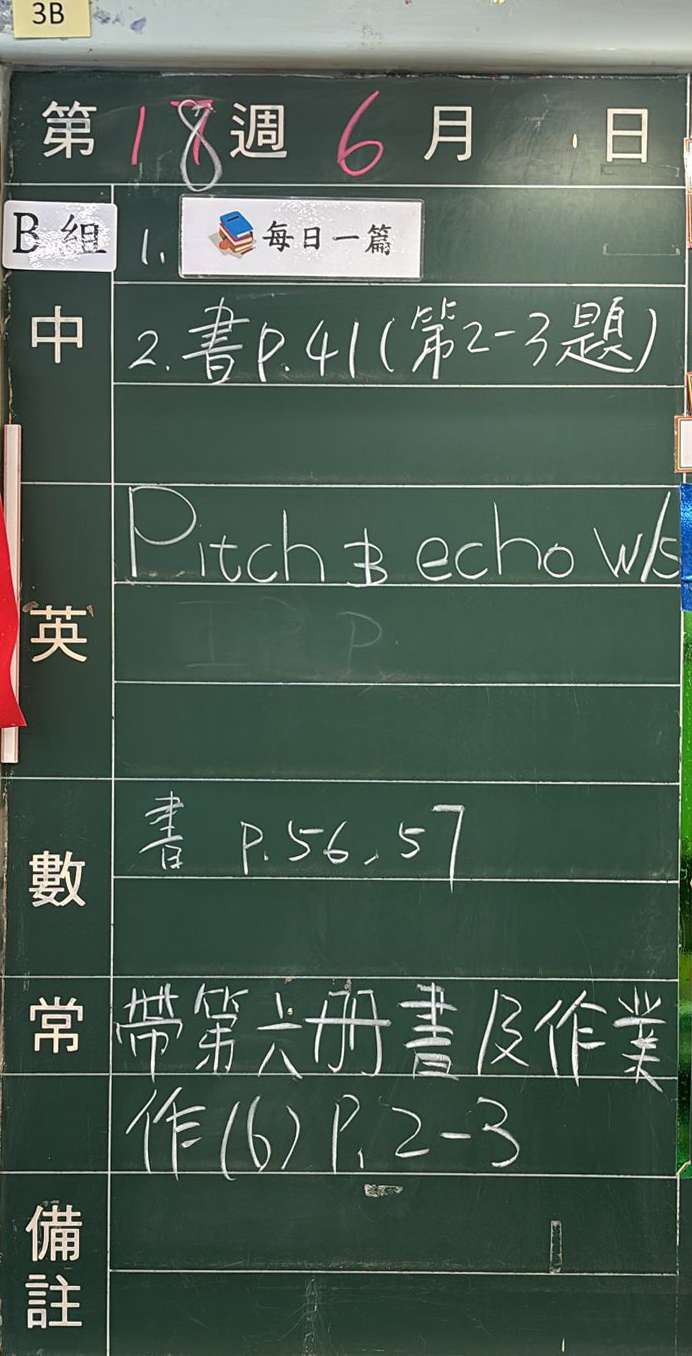 3B
第 18 週 6 月 日
B 組
1. 每日一篇
中
2. 書 P. 41 (第2-3題)
英
Pitch echo w/s
數
書 P. 56, 57
常
帶第六册書及作業
作 (6) P. 2-3
備註